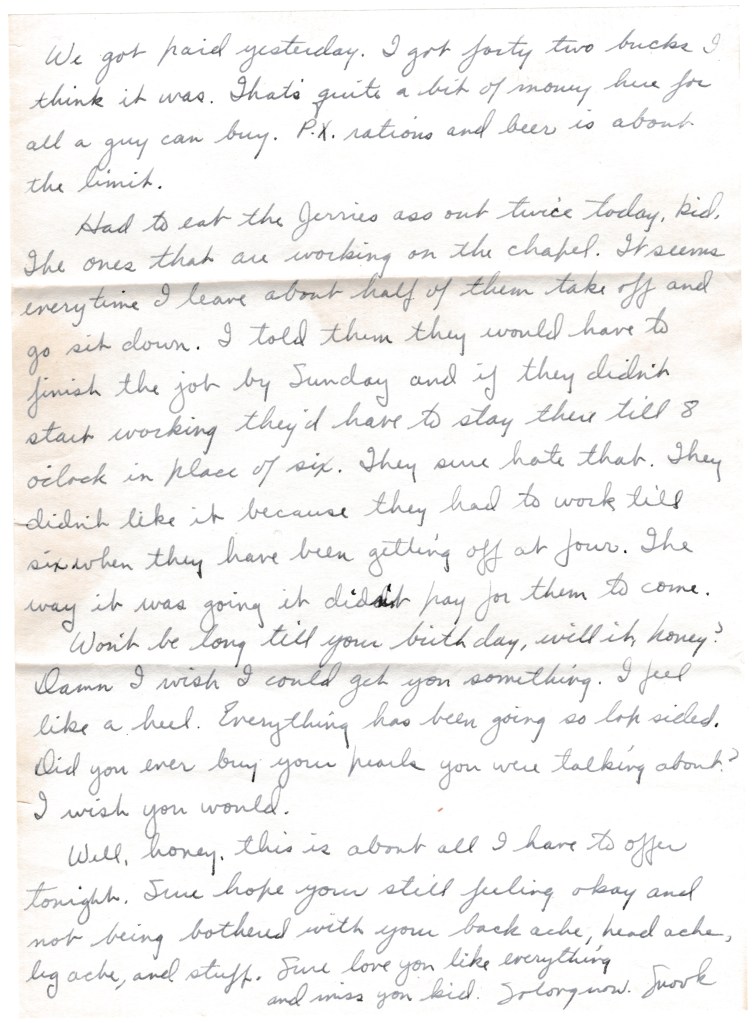 We got paid yesterday. I got forty two bucks I
think it was. That's quite a bit of money here for
all a guy can buy. P.X. rations and beer is about
the limit.
Had to eat the Jerries ass out twice today, kid.
The ones that are working on the chapel. It seems
everytime I leave about half of them take off and
go sit down. I told them they would have to
finish the job by Sunday and if they didn't
start working they'd have to stay there till 8
o'clock in place of six. They sure hate that. They
didn't like it because they had to work till
six when they have been getting off at four. The
way it was going it didn't pay for them to come.
Won't be long till your birthday, will it, honey?
Damn I wish I could get you something. I feel
like a heel. Everything has been going so lop sided.
Did you ever buy your pearls you were talking about?
I wish you would.
Well, honey, this is about all I have to offer
tonight. Sure hope your still feeling okay and
not being bothered with your back ache, head ache,
leg ache, and stuff. Sure love you like everything
and miss you kid. So long now. Snook